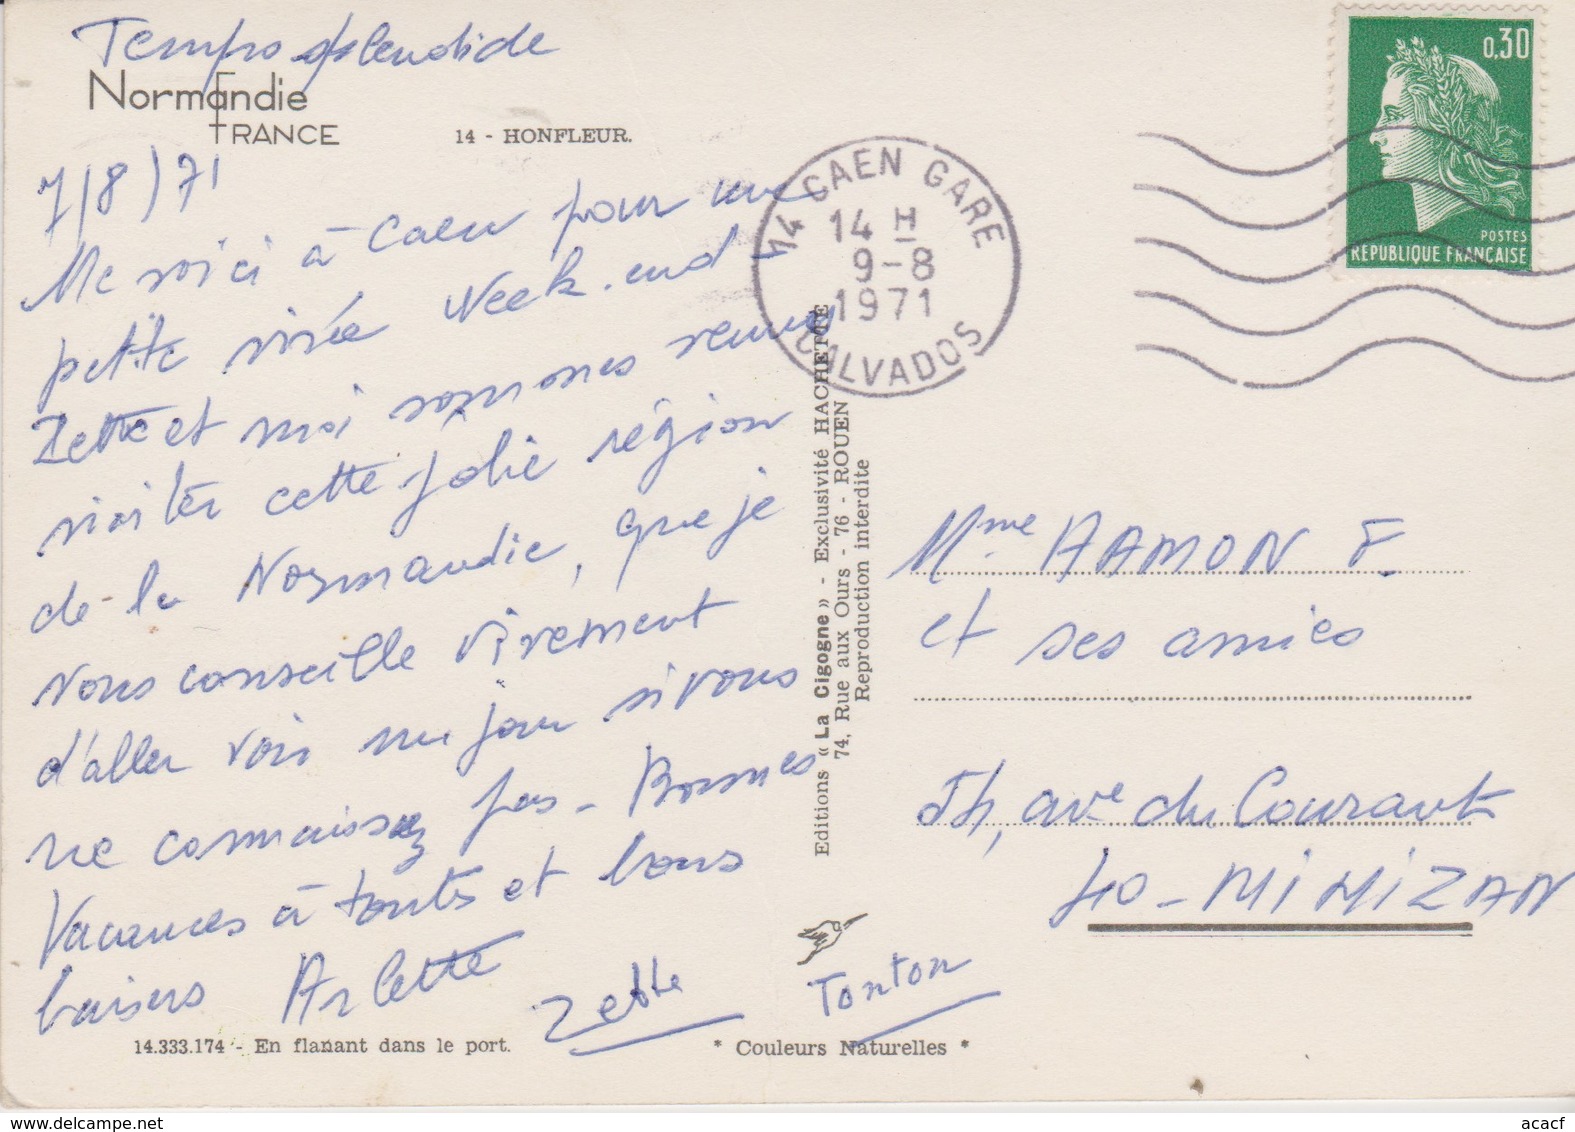 Temps splendide
Normandie
FRANCE
14 - HONFLEUR.
7/8/71
Me voici à Caen pour une
petite virée Week-end
Zette et moi sommes venues
visiter cette jolie région
de la Normandie, que je
vous conseille vivement
d'aller voir un jour si vous
ne connaissez pas - Bonnes
Vacances à toutes et bons
baisers Arlette
Zette
Tonton
14.333.174 - En flanant dans le port.
* Couleurs Naturelles *
Editions « La Cigogne » - Exclusivité HACHETTE
74, Rue aux Ours - 76 - ROUEN
Reproduction interdite
14 CAEN GARE
14 H
9-8
1971
CALVADOS
0,30
POSTES
REPUBLIQUE FRANÇAISE
Mme HAMON F.
et ses amies
ave du Courant
40 - MIMIZAN
delcampe.net
acacf